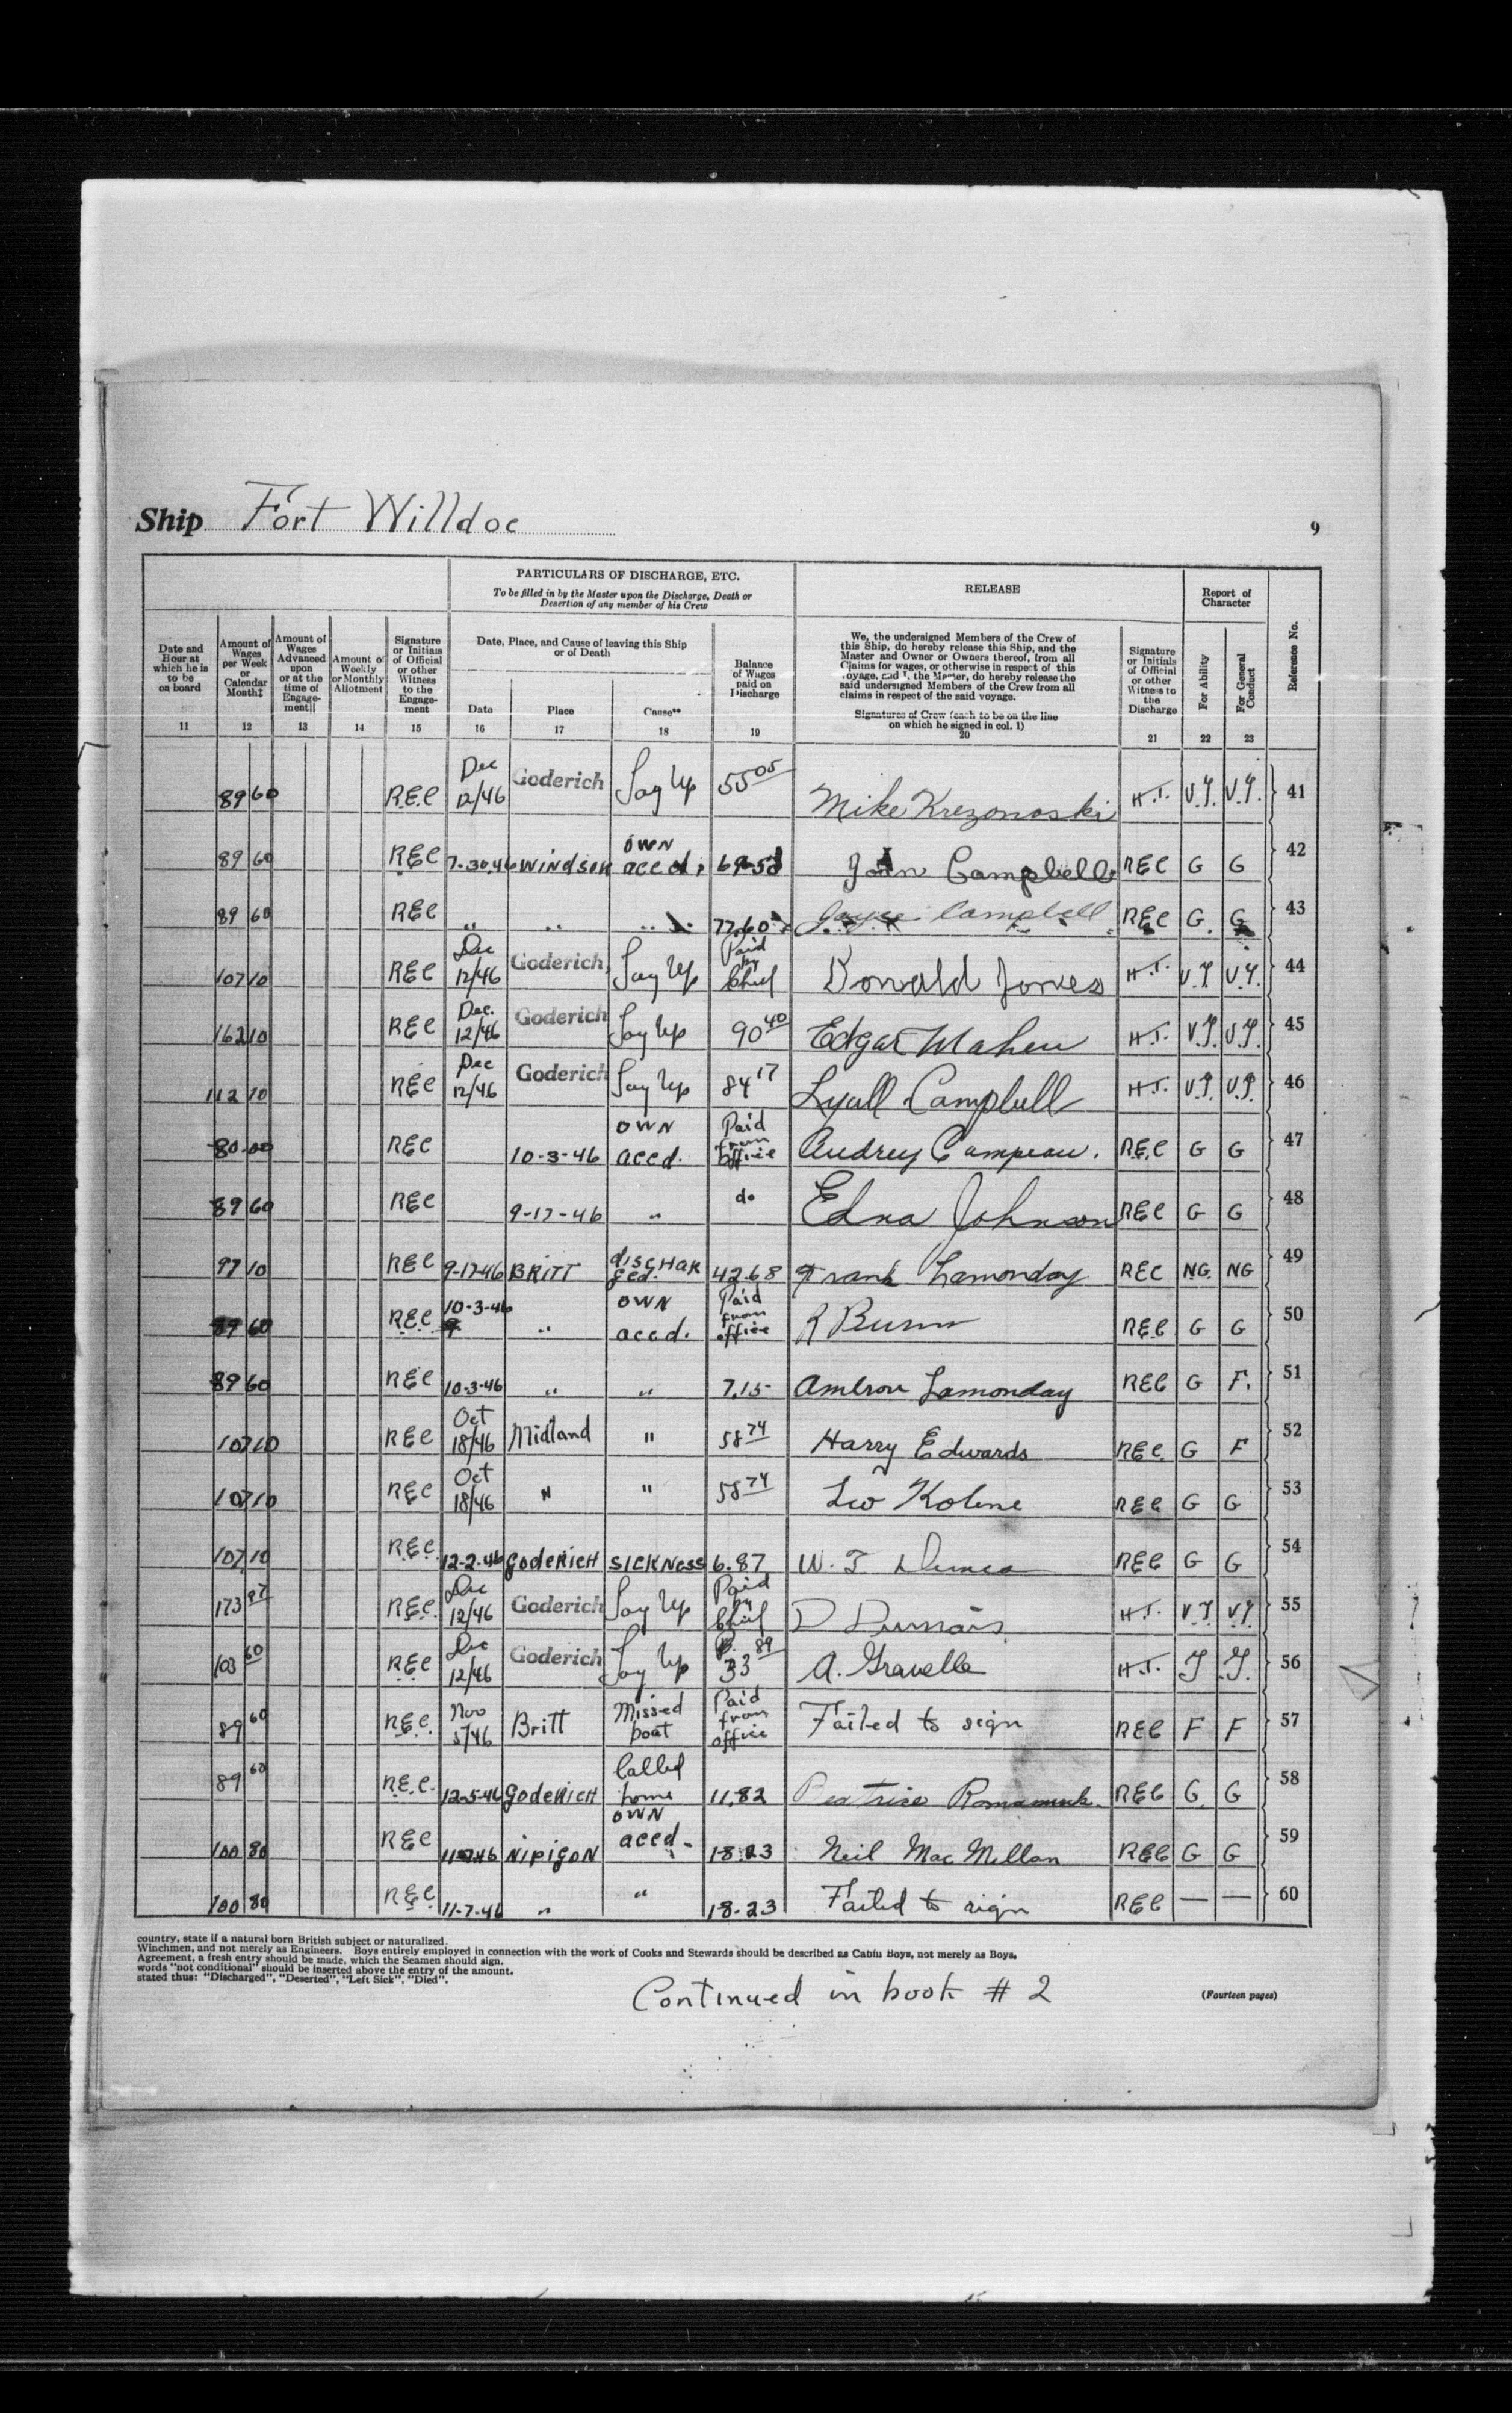 Ship Fort Willdoc
9
PARTICULARS OF DISCHARGE, ETC.
To be filled in by the Master upon the Discharge, Death or
Desertion of any member of his Crew
RELEASE
Report of
Character
Reference No.
Date and
Hour at
which he is
to be
on board
Amount of
Wages
per Week
or
Calendar
Month‡
Amount of
Wages
Advanced
upon
or at the
time of
Engage-
ment||
Amount of
Weekly
or Monthly
Allotment
Signature
or Initials
of Official
or other
Witness
to the
Engage-
ment
Date, Place, and Cause of leaving this Ship
or of Death
Date
Place
Cause**
Balance
of Wages
paid on
Discharge
We, the undersigned Members of the Crew of
this Ship, do hereby release this Ship, and the
Master and Owner or Owners thereof, from all
Claims for wages, or otherwise in respect of this
voyage, and I, the Master, do hereby release the
said undersigned Members of the Crew from all
claims in respect of the said voyage.
Signatures of Crew (each to be on the line
on which he signed in col. 1)
Signature
or Initials
of Official
or other
Witness to
the
Discharge
For Ability
For General
Conduct
11 12 13 14 15 16 17 18 19 20 21 22 23
89 60 R.E.C Dec 12/46 Goderich Lay Up 55 05 Mike Krezonoski H.T. V.G. V.G. 41
89 60 REC 7-30-46 WINDSOR OWN accd. Campbell REC G G 42
89 60 REC " " " 77.60 Joyce Campbell REC G. G 43
107 10 REC Dec 12/46 Goderich Lay Up Paid by Chief Donald Jones H.T. V.G V.G. 44
162 10 REC Dec. 12/46 Goderich Lay Up 90 40 Edgar Maheu H.T. V.G. V.G. 45
112 10 REC Dec 12/46 Goderich Lay Up 84 17 Lyall Campbell H.T. V.G. V.G. 46
80.00 REC 10-3-46 OWN accd. Paid from office Audrey Campeau. R.E.C G G 47
89 60 REC 9-17-46 " do Edna Johnson REC G G 48
97 10 REC 9-17-46 BRITT discharged. 42.68 Frank Lamonday REC NG. NG 49
89 60 R.E.C 10-3-46 " OWN accd. Paid from office R Burns REC G G 50
89 60 REC 10-3-46 " " 7.15 Lamonday REC G F. 51
107 10 REC Oct 18/46 Midland " 58 74 Harry Edwards REC. G F 52
107 10 REC Oct 18/46 " " 58 74 Leo REC G G 53
107.10 R.E.C. 12-2-46 GODERICH SICKNESS 6.87 W. J. REC G G 54
173 87 R.E.C. Dec 12/46 Goderich Lay Up Paid by Chief D Dumais H.T. V.G V.G 55
103 60 R.E.C Dec 12/46 Goderich Lay Up 33 89 A. Gravelle H.T. G G. 56
89 60 R.E.C. Nov 5/46 Britt Missed boat Paid from office Failed to sign REC F F 57
89 60 R.E.C. 12-5-46 GODERICH Called home 11.82 Beatrice REC G. G 58
100 80 REC NIPIGON OWN accd. 18.23 Neil MacMillan REC G G 59
100 80 R.E.C 11-7-46 " " 18.23 Failed to sign REC — — 60
country, state if a natural born British subject or naturalized.
Winchmen, and not merely as Engineers. Boys entirely employed in connection with the work of Cooks and Stewards should be described as Cabin Boys, not merely as Boys.
Agreement, a fresh entry should be made, which the Seamen should sign.
words "not conditional" should be inserted above the entry of the amount.
stated thus: "Discharged", "Deserted", "Left Sick", "Died".
Continued in book # 2
(Fourteen pages)